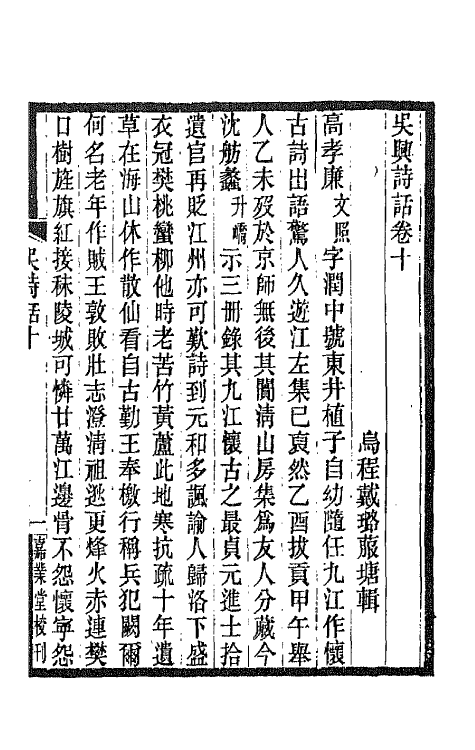 吳興詩話卷十
烏程戴璐菔塘輯
高孝廉文照字潤中號東井植子自幼隨任九江作懷
古詩出語驚人久遊江左集已裒然乙酉拔貢甲午舉
人乙未歿於京師無後其闤淸山房集爲友人分藏今
沈舫蠡升嶠示三冊錄其九江懷古之最貞元進士拾
遺官再貶江州亦可歎詩到元和多諷諭人歸洛下盛
衣冠樊桃蠻柳他時老苦竹黃蘆此地寒抗疏十年遺
草在海山休作散仙看自古勤王奉檄行稱兵犯闕爾
何名老年作賊王敦敗壯志澄淸祖逖更烽火赤連樊
口樹旌旗紅接秣陵城可憐廿萬江邊骨不怨懷寧怨
吳詩話十
一
嘉業堂校刊